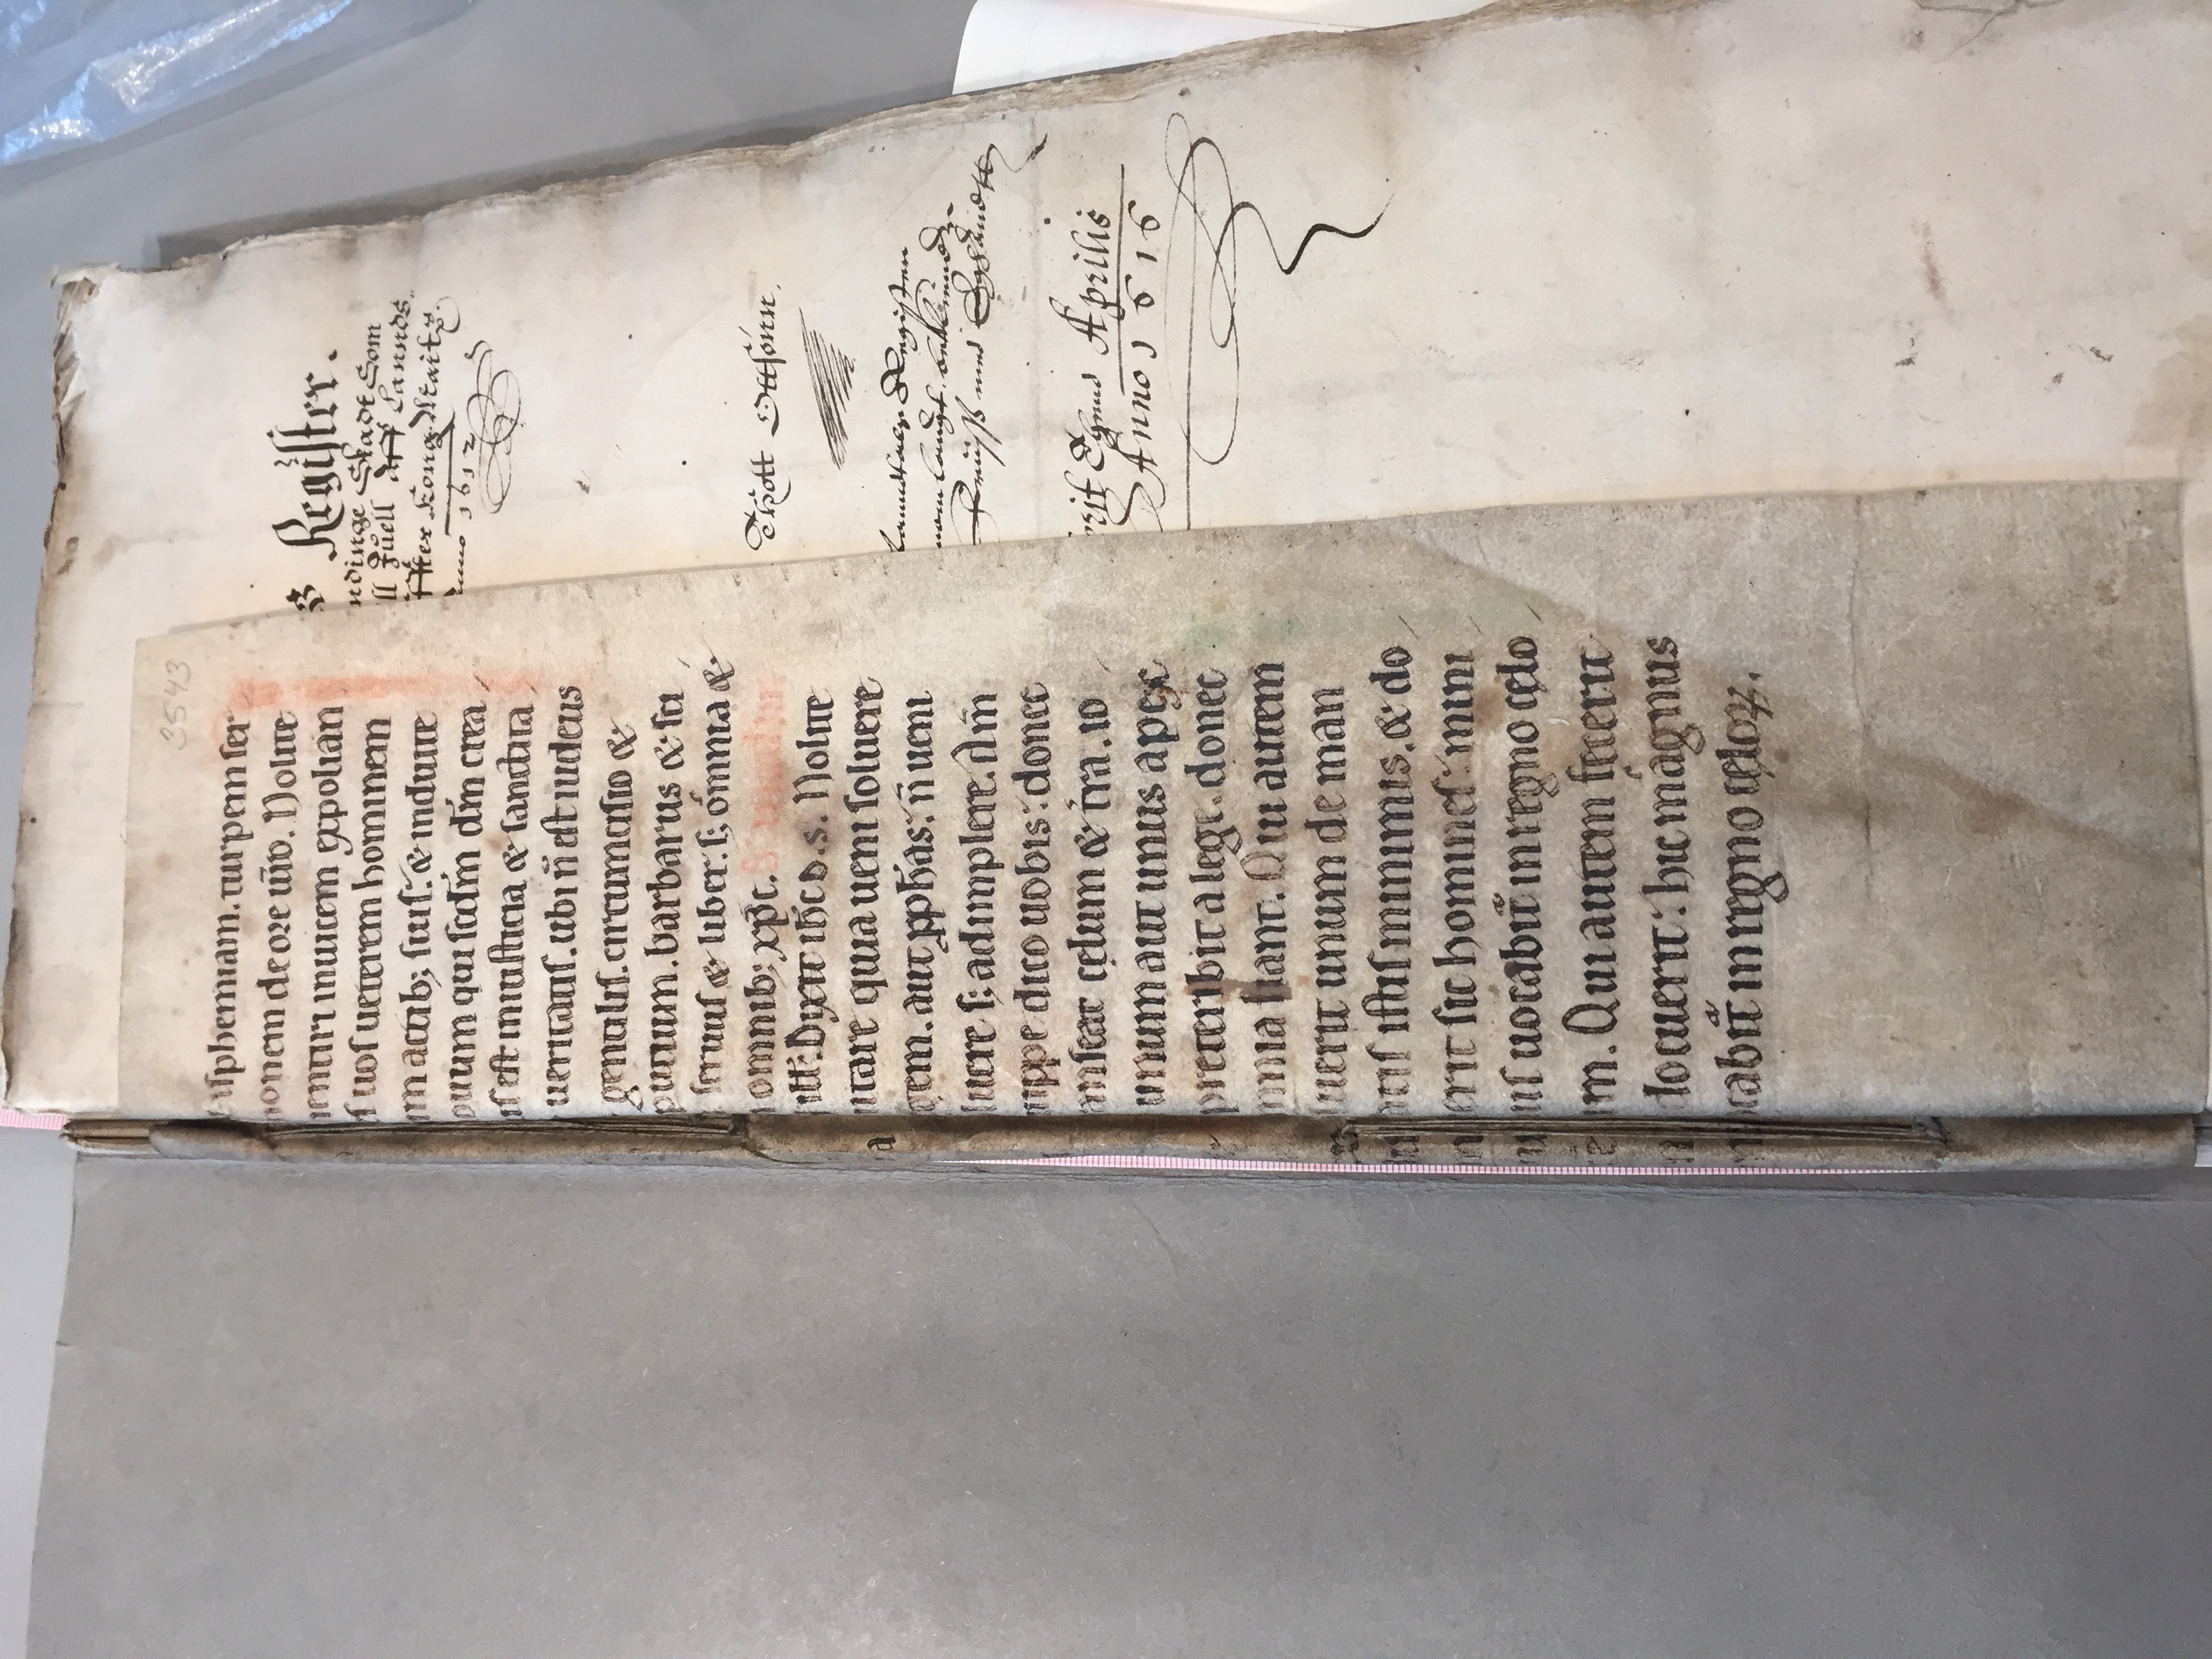 3543
asphemiam. turpem ser
onem de ore ur̄o. Nolite
entiri inuicem expolian
s uos ueterem hominem
m actib; suis: & induite
ouum qui scdm̄ dm̄ crea
us est in iusticia & sanctita
ueritatis. ubi n̄ est iudeus
gentilis. circumcisio &
putium. barbarus & sci
seruus & liber. s; omnia &
omnib; xp̄c.
ill': Dixit ih̄c d.s. Nolite
utare quia ueni soluere
gem. aut ꝓph̄as: n̄ ueni
luere s; adimplere. Am̄
uippe dico uobis: donec
anseat cęlum & t̄ra. io
unum aut unus apex
preteribit a lege. donec
mnia fiant. Qui autem
luerit unum de man
atis istis minimis. & do
erit sic homines: mini
us uocabit᷑ in regno cęlo
um. Qui autem fecerit
docuerit: hic magnus
ocabit᷑ in regno cęloꝝ.
s Register.
ndinge Skadt Som
ll Juell aff Lannds
ffter Kong. Maitz.
nno 1612
Thott Ottsonn.
Register
Aprilis
Anno 1616